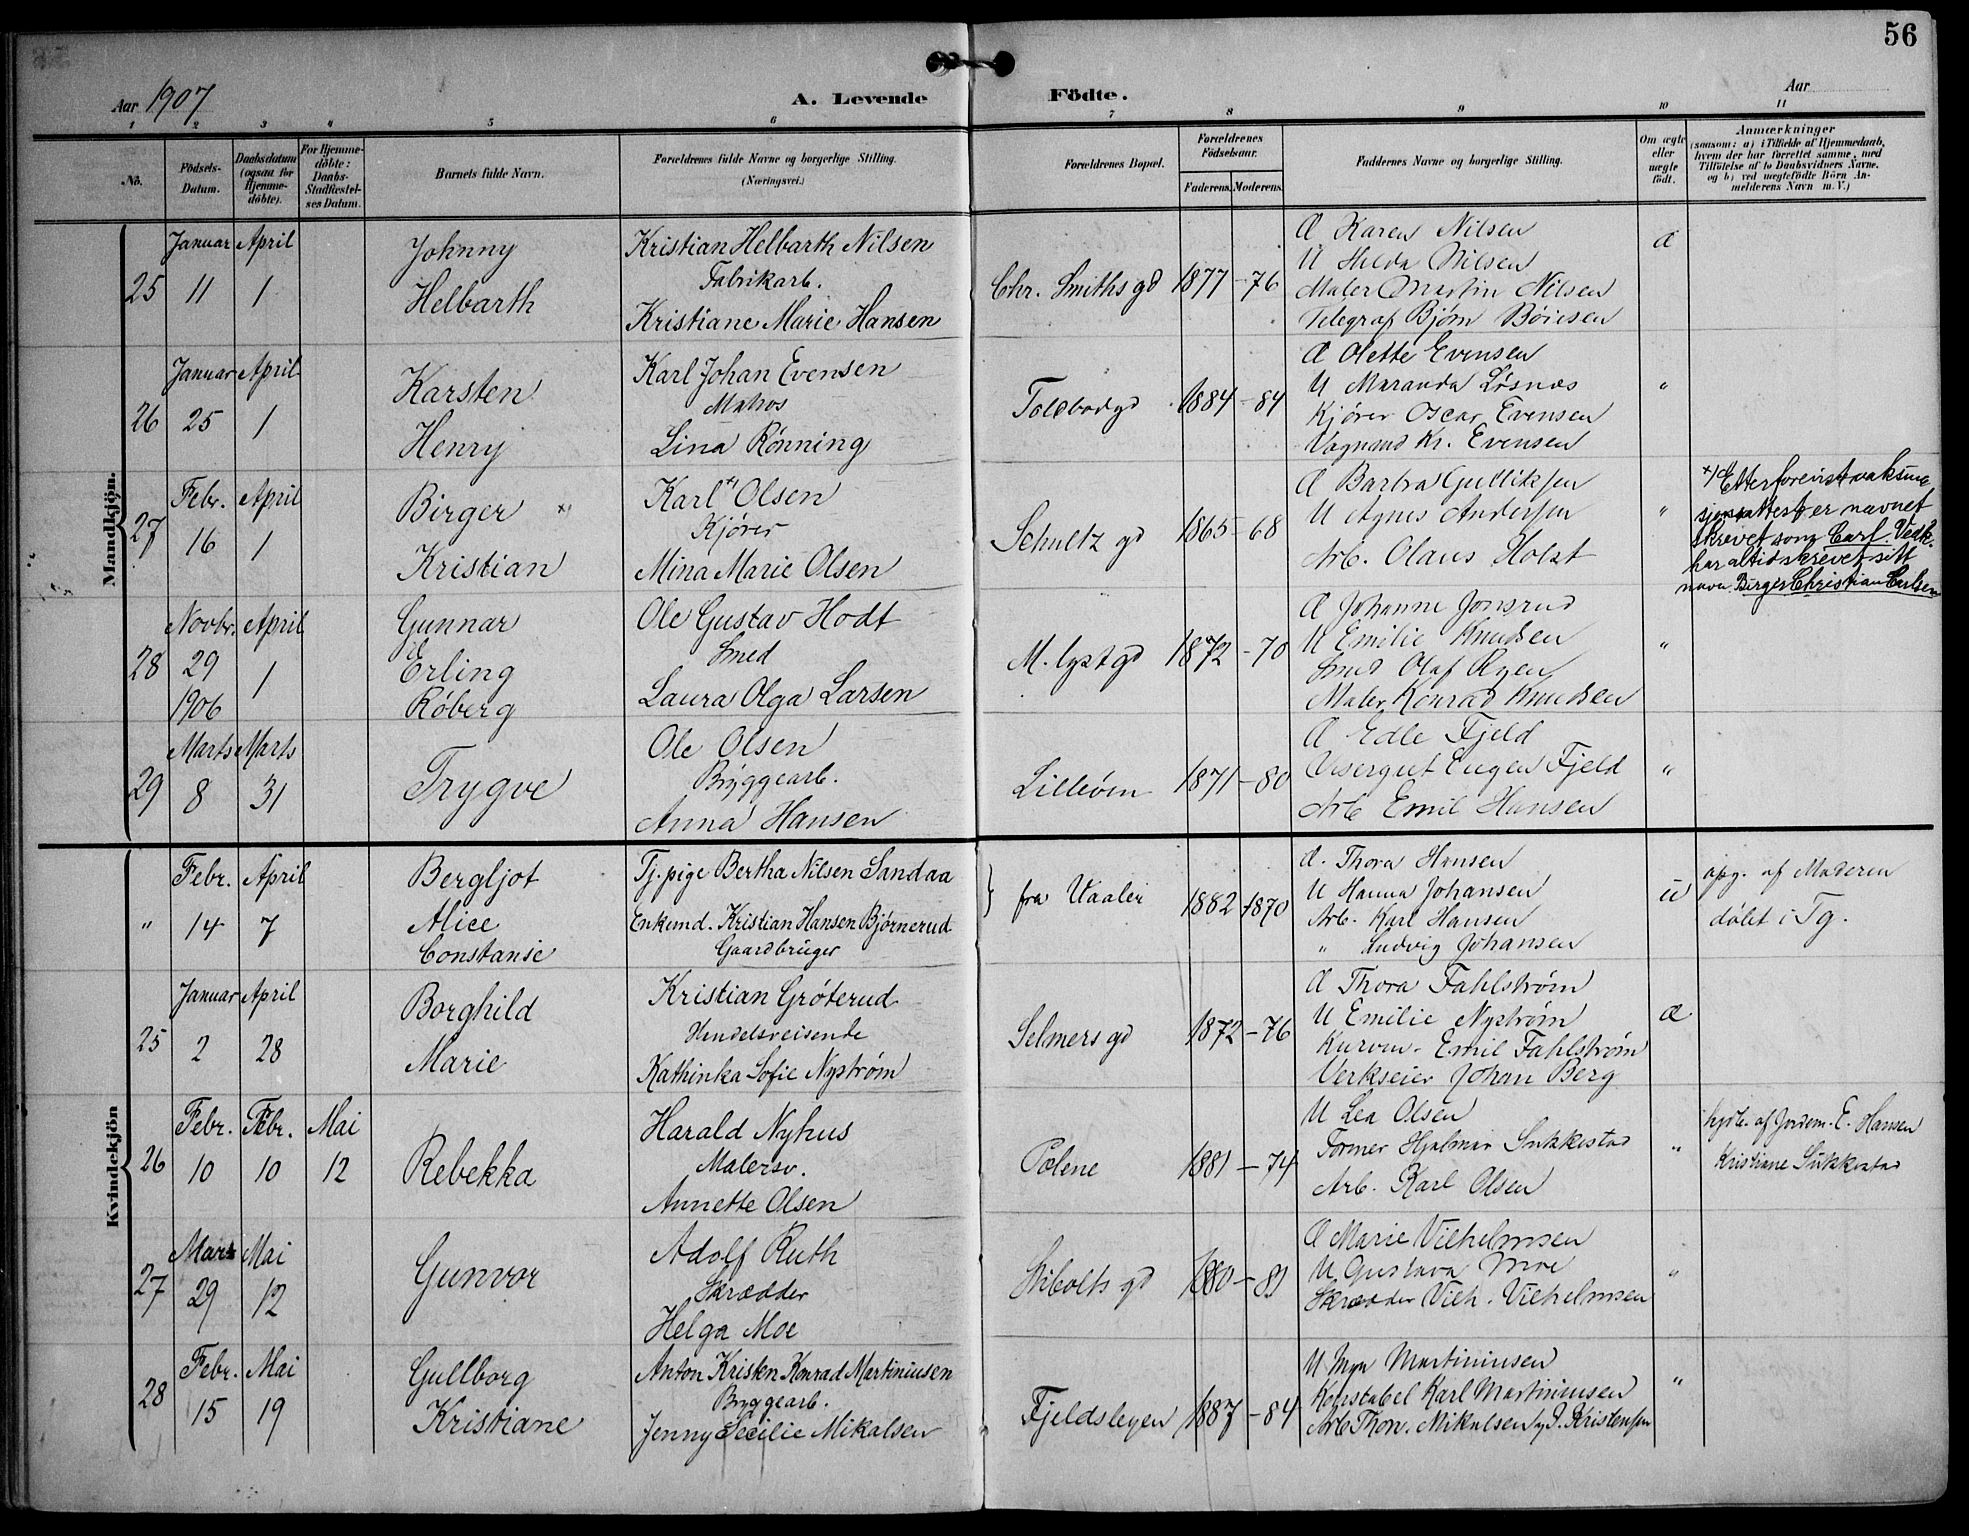 56
Aar 1907
A. Levende Födte.
Aar
1 2 3 4 5 6 7 8 9 10 11
No.
Födsels-Datum.
Daabsdatum (ogsaa for Hjemme-döbte).
For Hjemme-döbte: Daabs-Stadfæstel-ses Datum.
Barnets fulde Navn.
Forældrenes fulde Navne og borgerlige Stilling.
(Næringsvei.)
Forældrenes Bopæl.
Forældrenes Födselsaar.
Faderens. Moderens.
Faddernes Navne og borgerlige Stilling.
Om ægte eller uægte födt.
Anmærkninger
(saasom: a) i Tilfælde af Hjemmedaab, hvem der har forrettet samme, med Tilföielse af to Daabsvidners Navne. og b) ved uægtefödte Börn An-melderens Navn m. V.)
Mandkjön.
25 Januar 11 April 1
Johnny
Helbarth
Kristian Helbarth Nilsen
Fabrikarb.
Kristiane Marie Hansen
Chr. Smiths gd 1877 - 76
Æ Karen Nilsen
U Hilda Nilsen
Maler Martin Nilsen
Telegraf Bjørn Böiesen
Æ
26 Januar 25 April 1
Karsten
Henry
Karl Johan Evensen
Matros
Lina Rönning
Toldbodgd 1884 - 84
Æ Olette Evensen
U Maranda Lösnæs
Kjörer Oscar Evensen
Vognmd Kr. Evensen
"
27 Febr. 16 April 1
Birger x)
Kristian
Karl x) Olsen
Kjörer
Mina Marie Olsen
Schultz gd 1865 - 68
Æ Barbra Gulliksen
U Agnes Andersen
Arb. Olaus Holst
"
x) Etter forevist vaksine
sjonsattest er navnet
skrevet som Carl. Vedk.
har altid skrevet sitt
navn Birger Christian Carlsen
28 Novbr. 29 1906 April 1
Gunnar
Erling
Röberg
Ole Gustav Hodt
Smed
Laura Olga Larsen
M. lystgd 1872 - 70
Æ Johanne Jonsrud
U Emilie Knudsen
Smed Olaf Ryen
Maler Konrad Knudsen
"
29 Marts 8 Marts 31
Trygve
Ole Olsen
Bryggearb.
Anna Hansen
Lilleöen 1871 - 80
Æ Edle Fjeld
Visergut Eugen Fjeld
Arb Emil Hansen
"
Kvindekjön
" Febr. 14 April 7
Bergljot
Alice
Constanse
Tj. pige Bertha Nilsen Sandaa
Enkemd. Kristian Hansen Bjørnerud
Gaardbruger
} fra Vaaler 1882 1870
Æ. Thora Hansen
U Hanna Johansen
Arb. Karl Hansen
" Ludvig Johansen
U
opg. af Moderen
döbt i Tg.
25 Januar 2 April 28
Borghild
Marie
Kristian Gröterud
Handelsreisende
Kathinka Sofie Nyström
Selmers gd 1872 - 76
Æ Thora Fahlström
U Emilie Nyström
Kurvm. Emil Fahlström
Verkseier Johan Berg
Æ
26 Febr. 10 Febr. 10 Mai 12
Rebekka
Harald Nyhus
Malersv.
Annette Olsen
Pølene 1881 - 74
U Lea Olsen
Former Hjalmar Sukkestad
Arb. Karl Olsen
"
hjdb. af Jordem. E. Hansen
Kristiane Sukkestad
27 Mars 29 Mai 12
Gunvor
Adolf Ruth
Skrædder
Helga Moe
Stibolts gd 1880 - 81
Æ Marie Vilhelmsen
U Gustava Moe
Skrædder Vilh. Vilhelmsen
"
28 Febr. 15 Mai 19
Gullborg
Kristiane
Anton Kristen Konrad Martiniusen
Bryggearb.
Jenny Cecilie Mikalsen
Fjeldsleyen 1887 - 84
U Mya Martiniusen
Konstabel Karl Martiniusen
Arb Thorv. Mikalsen P. Kristensen
"